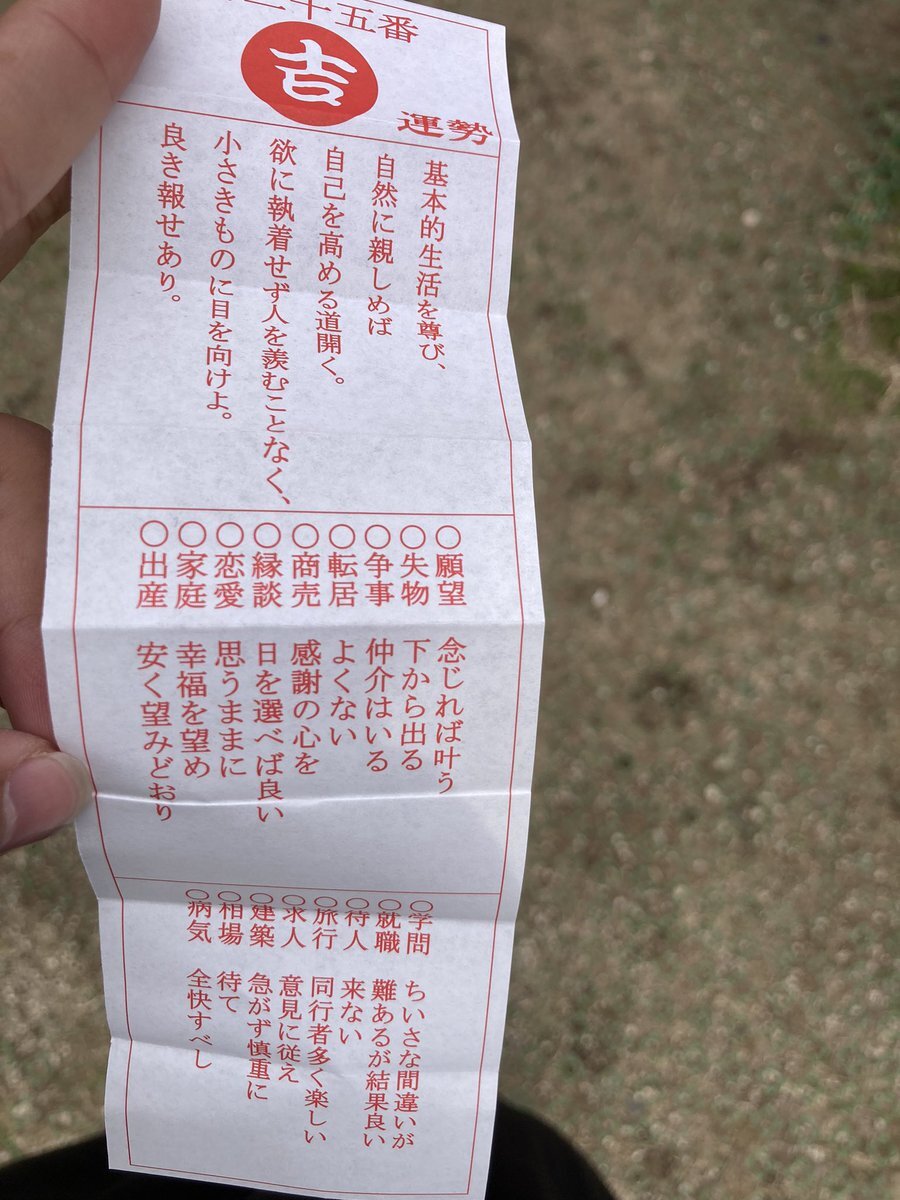 二十五番
吉
運勢
基本的生活を尊び、
自然に親しめば
自己を高める道開く。
欲に執着せず人を羨むことなく、
小さきものに目を向けよ。
良き報せあり。
〇願望 念じれば叶う
〇失物 下から出る
〇争事 仲介はいる
〇転居 よくない
〇商売 感謝の心を
〇縁談 日を選べば良い
〇恋愛 思うままに
〇家庭 幸福を望め
〇出産 安く望みどおり
〇学問 ちいさな間違いが
〇就職 難あるが結果良い
〇待人 来ない
〇旅行 同行者多く楽しい
〇求人 意見に従え
〇建築 急がず慎重に
〇相場 待て
〇病気 全快すべし